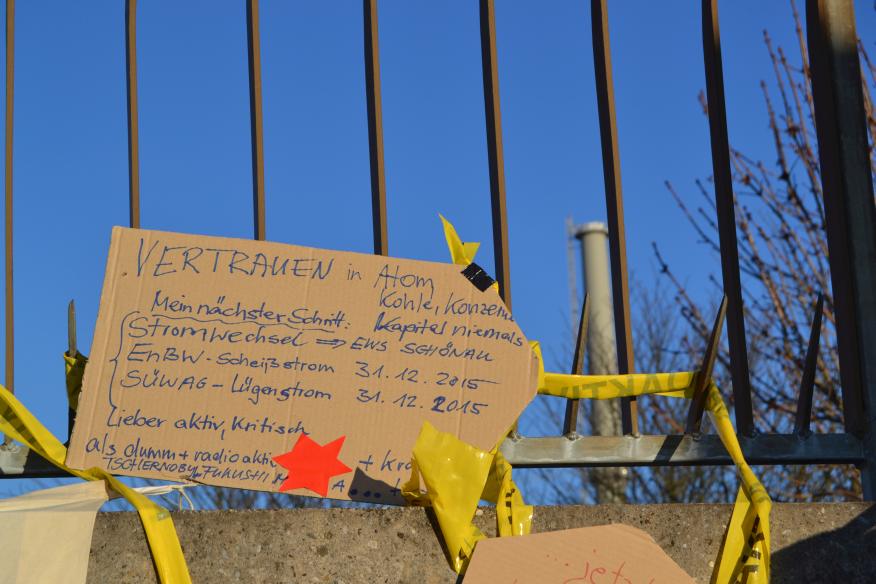 VERTRAUEN in Atom
Kohle, Konzerne
Kapital niemals
Mein nächster Schritt:
Stromwechsel ⇒ EWS SCHÖNAU
EnBW - Scheißstrom 31.12.2015
SÜWAG - Lügenstrom 31.12.2015
Lieber aktiv, kritisch
als dumm + radioaktiv + Kr
TSCHERNOBYL FUKUSHIMA A...+
jet